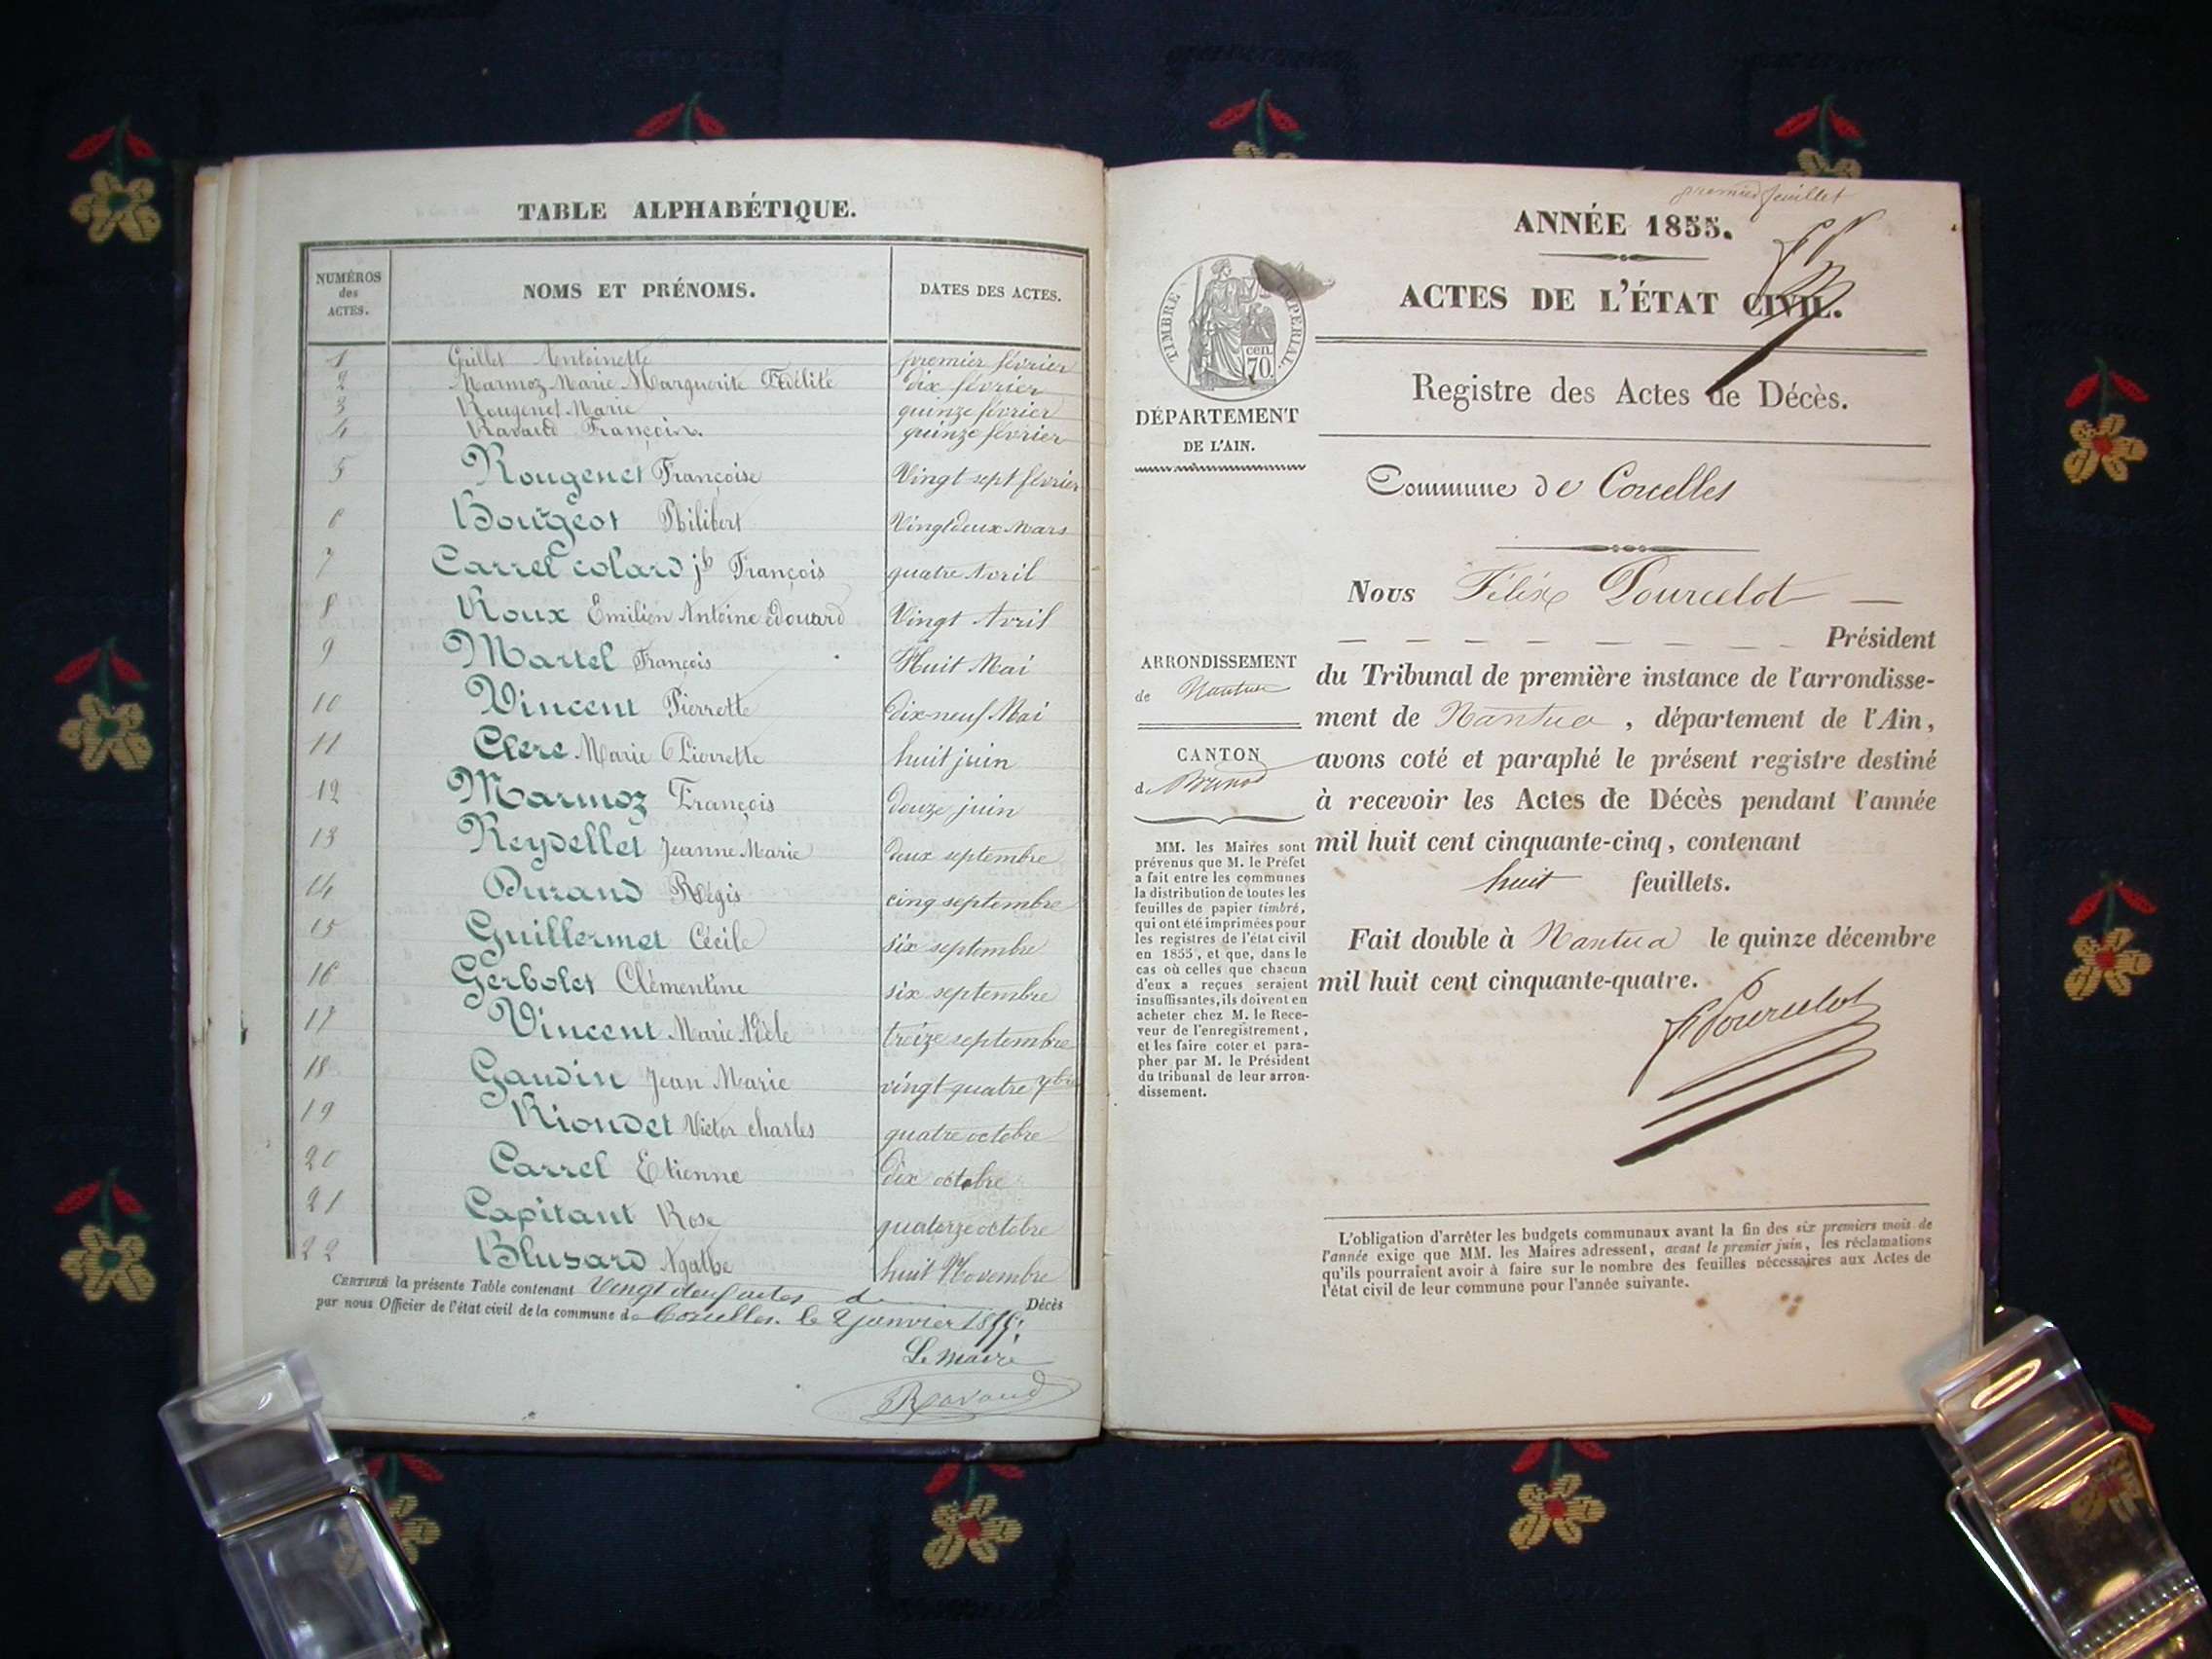 TABLE ALPHABÉTIQUE.
NUMÉROS des ACTES.
NOMS ET PRÉNOMS.
DATES DES ACTES.
1 Grillet Antoinette premier février
2 Marmoz Marie Marguerite Fidélité dix février
3 Rougenet Marie quinze février
4 Ravaud François. quinze février
5 Rougenet Françoise Vingt sept février
6 Bourgeot Philibert Vingt deux Mars
7 Carrel colard jh François quatre Avril
8 Roux Emilien Antoine édouard Vingt Avril
9 Martel François Huit Mai
10 Vincent Pierrette dix-neuf Mai
11 Clerc Marie Pierrette huit juin
12 Marmoz François douze juin
13 Reydellet Jeanne Marie deux septembre
14 Durand Régis cinq septembre
15 Guillermet Cécile six septembre
16 Gerbolet Clémentine six septembre
17 Vincent Marie Adèle treize septembre
18 Gaudin Jean Marie vingt quatre 7bre
19 Riondet Victor charles quatre octobre
20 Carrel Etienne dix octobre
21 Capitant Rose quatorze octobre
22 Blusard Agathe huit Novembre
CERTIFIÉ la présente Table contenant Vingt deux actes de Décès
par nous Officier de l'état civil de la commune de Corcelles. le 2 janvier
Le maire
Ravaud
premier feuillet
ANNÉE 1855.
ACTES DE L'ÉTAT CIVIL.
TIMBRE IMPERIAL.
70 cen.
DÉPARTEMENT
DE L'AIN.
Registre des Actes de Décès.
Commune de Corcelles
Nous Félix Pourcelot
Président
du Tribunal de première instance de l'arrondisse-
ment de Nantua, département de l'Ain,
avons coté et paraphé le présent registre destiné
à recevoir les Actes de Décès pendant l'année
mil huit cent cinquante-cinq, contenant
huit feuillets.
Fait double à Nantua le quinze décembre
mil huit cent cinquante-quatre.
F Pourcelot
ARRONDISSEMENT
de Nantua
CANTON
de Brénod
MM. les Maires sont
prévenus que M. le Préfet
a fait entre les communes
la distribution de toutes les
feuilles de papier timbré,
qui ont été imprimées pour
les registres de l'état civil
en 1855, et que, dans le
cas où celles que chacun
d'eux a reçues seraient
insuffisantes, ils doivent en
acheter chez M. le Rece-
veur de l'enregistrement,
et les faire coter et para-
pher par M. le Président
du tribunal de leur arron-
dissement.
L'obligation d'arrêter les budgets communaux avant la fin des six premiers mois de
l'année exige que MM. les Maires adressent, avant le premier juin, les réclamations
qu'ils pourraient avoir à faire sur le nombre des feuilles nécessaires aux Actes de
l'état civil de leur commune pour l'année suivante.